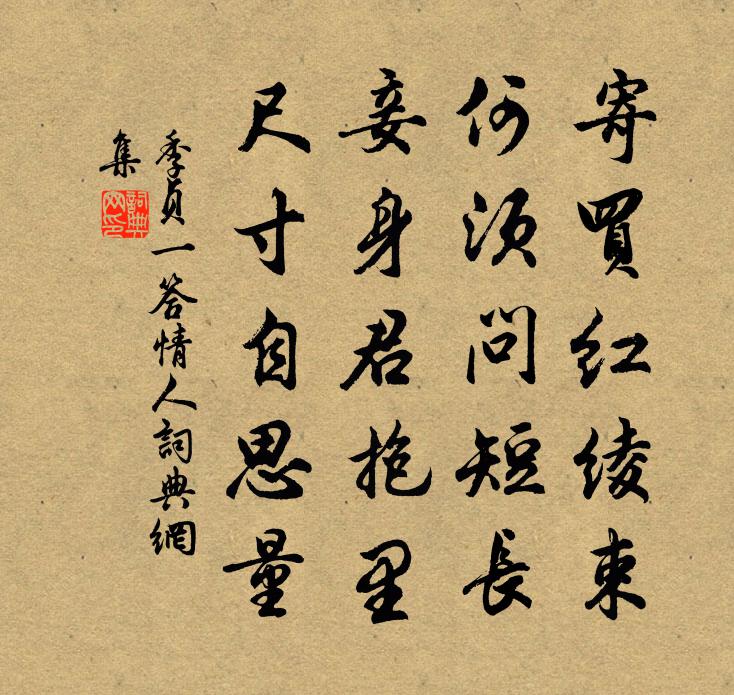 寄買紅綾束
何須問短長
妾身君抱里
尺寸自思量
季貞一答情人詞典網
集
詞典网印